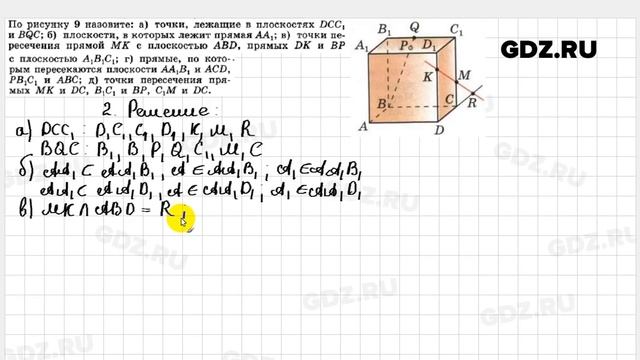 По рисунку 9 назовите: а) точки, лежащие в плоскостях DCC₁
и BQC; б) плоскости, в которых лежит прямая AA₁; в) точки пе-
ресечения прямой MK с плоскостью ABD, прямых DK и BP
с плоскостью A₁B₁C₁; г) прямые, по кото-
рым пересекаются плоскости AA₁B₁ и ACD,
PB₁C₁ и ABC; д) точки пересечения пря-
мых MK и DC, B₁C₁ и BP, C₁M и DC.
B₁ Q C₁
A₁ P D₁
K M
B C R
A D
GDZ.RU
2. Решение:
а) DCC₁: D, C, C₁, D₁, K, M, R
BQC: B₁, B, P, Q, C₁, M, C
б) AA₁ ⊂ AA₁B₁, A ∈ AA₁B₁; A₁ ∈ AA₁B₁
AA₁ ⊂ AA₁D₁, A ∈ AA₁D₁; A₁ ∈ AA₁D₁
в) MK ∩ ABD = R;